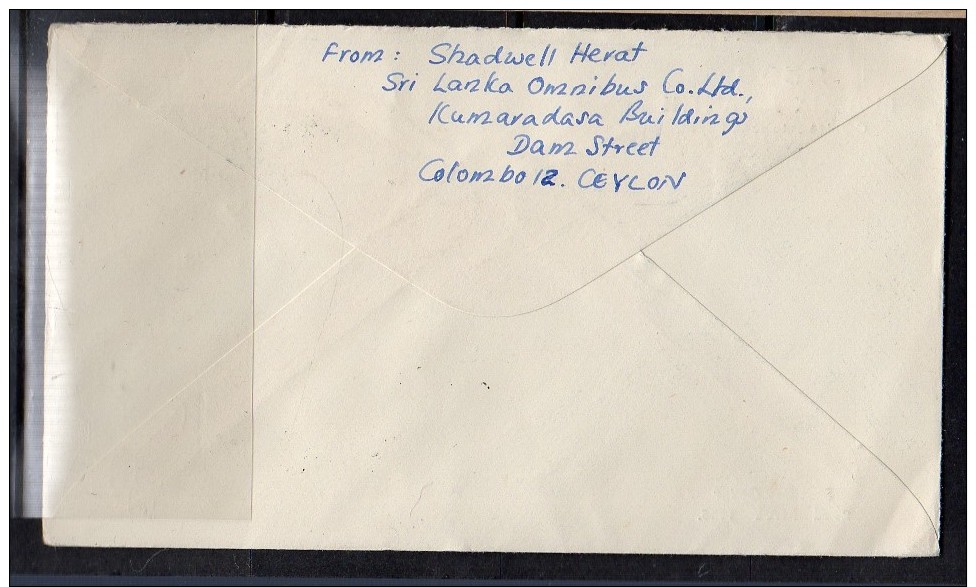 From: Shadwell Herat
Sri Lanka Omnibus Co. Ltd.,
Kumaradasa Buildings
Dam Street
Colombo 12. CEYLON